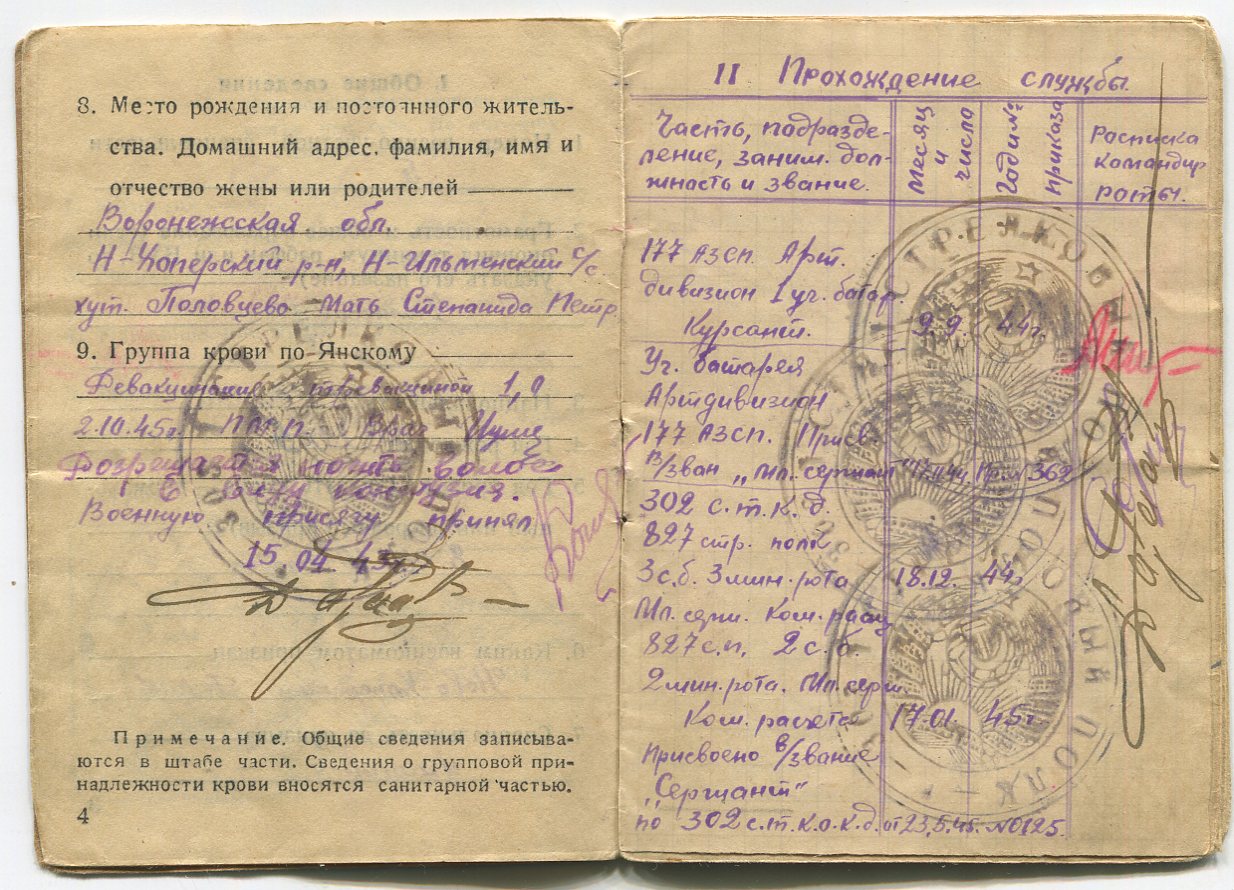 8. Место рождения и постоянного житель-
ства. Домашний адрес. фамилия, имя и
отчество жены или родителей
Воронежская обл.
Н-Хоперский р-н, Н-Ильменский с/с
хут. Половцево Мать Степанида Петр.
9. Группа крови по Янскому
1,0
2.10.45г. ПМП. Врач
Разрешается носить волосы
В виду контузия.
Военную присягу принял
15.04.43г.
Примечание. Общие сведения записыва-
ются в штабе части. Сведения о групповой при-
надлежности крови вносятся санитарной частью.
4
II Прохождение службы.
Часть, подразде-
ление, заним. дол-
жность и звание.
Месяц и число
Год и № приказа
Расписка командир роты.
177 АЗСП. Арт.
дивизион 1 уч. батар.
Курсант. 9.9. 44г.
Уч. батарея
Артдивизион
177 АЗСП. Присв.
в/зван „Мл. сержант 362
302 с.т.к.д.
827 стр. полк
3 с.б. 3 мин. рота 18.12. 44г
Мл. серж. Ком. расч
827 с.п. 2 с.б.
2 мин. рота. Мл. серж.
Ком. расчета 17.01. 45г.
Присвоено в/звание
„Сержант"
по 302 с.т.к.о.к.д. от 23.5.45. №0125.
СТРЕЛКОВЫЙ ПОЛК